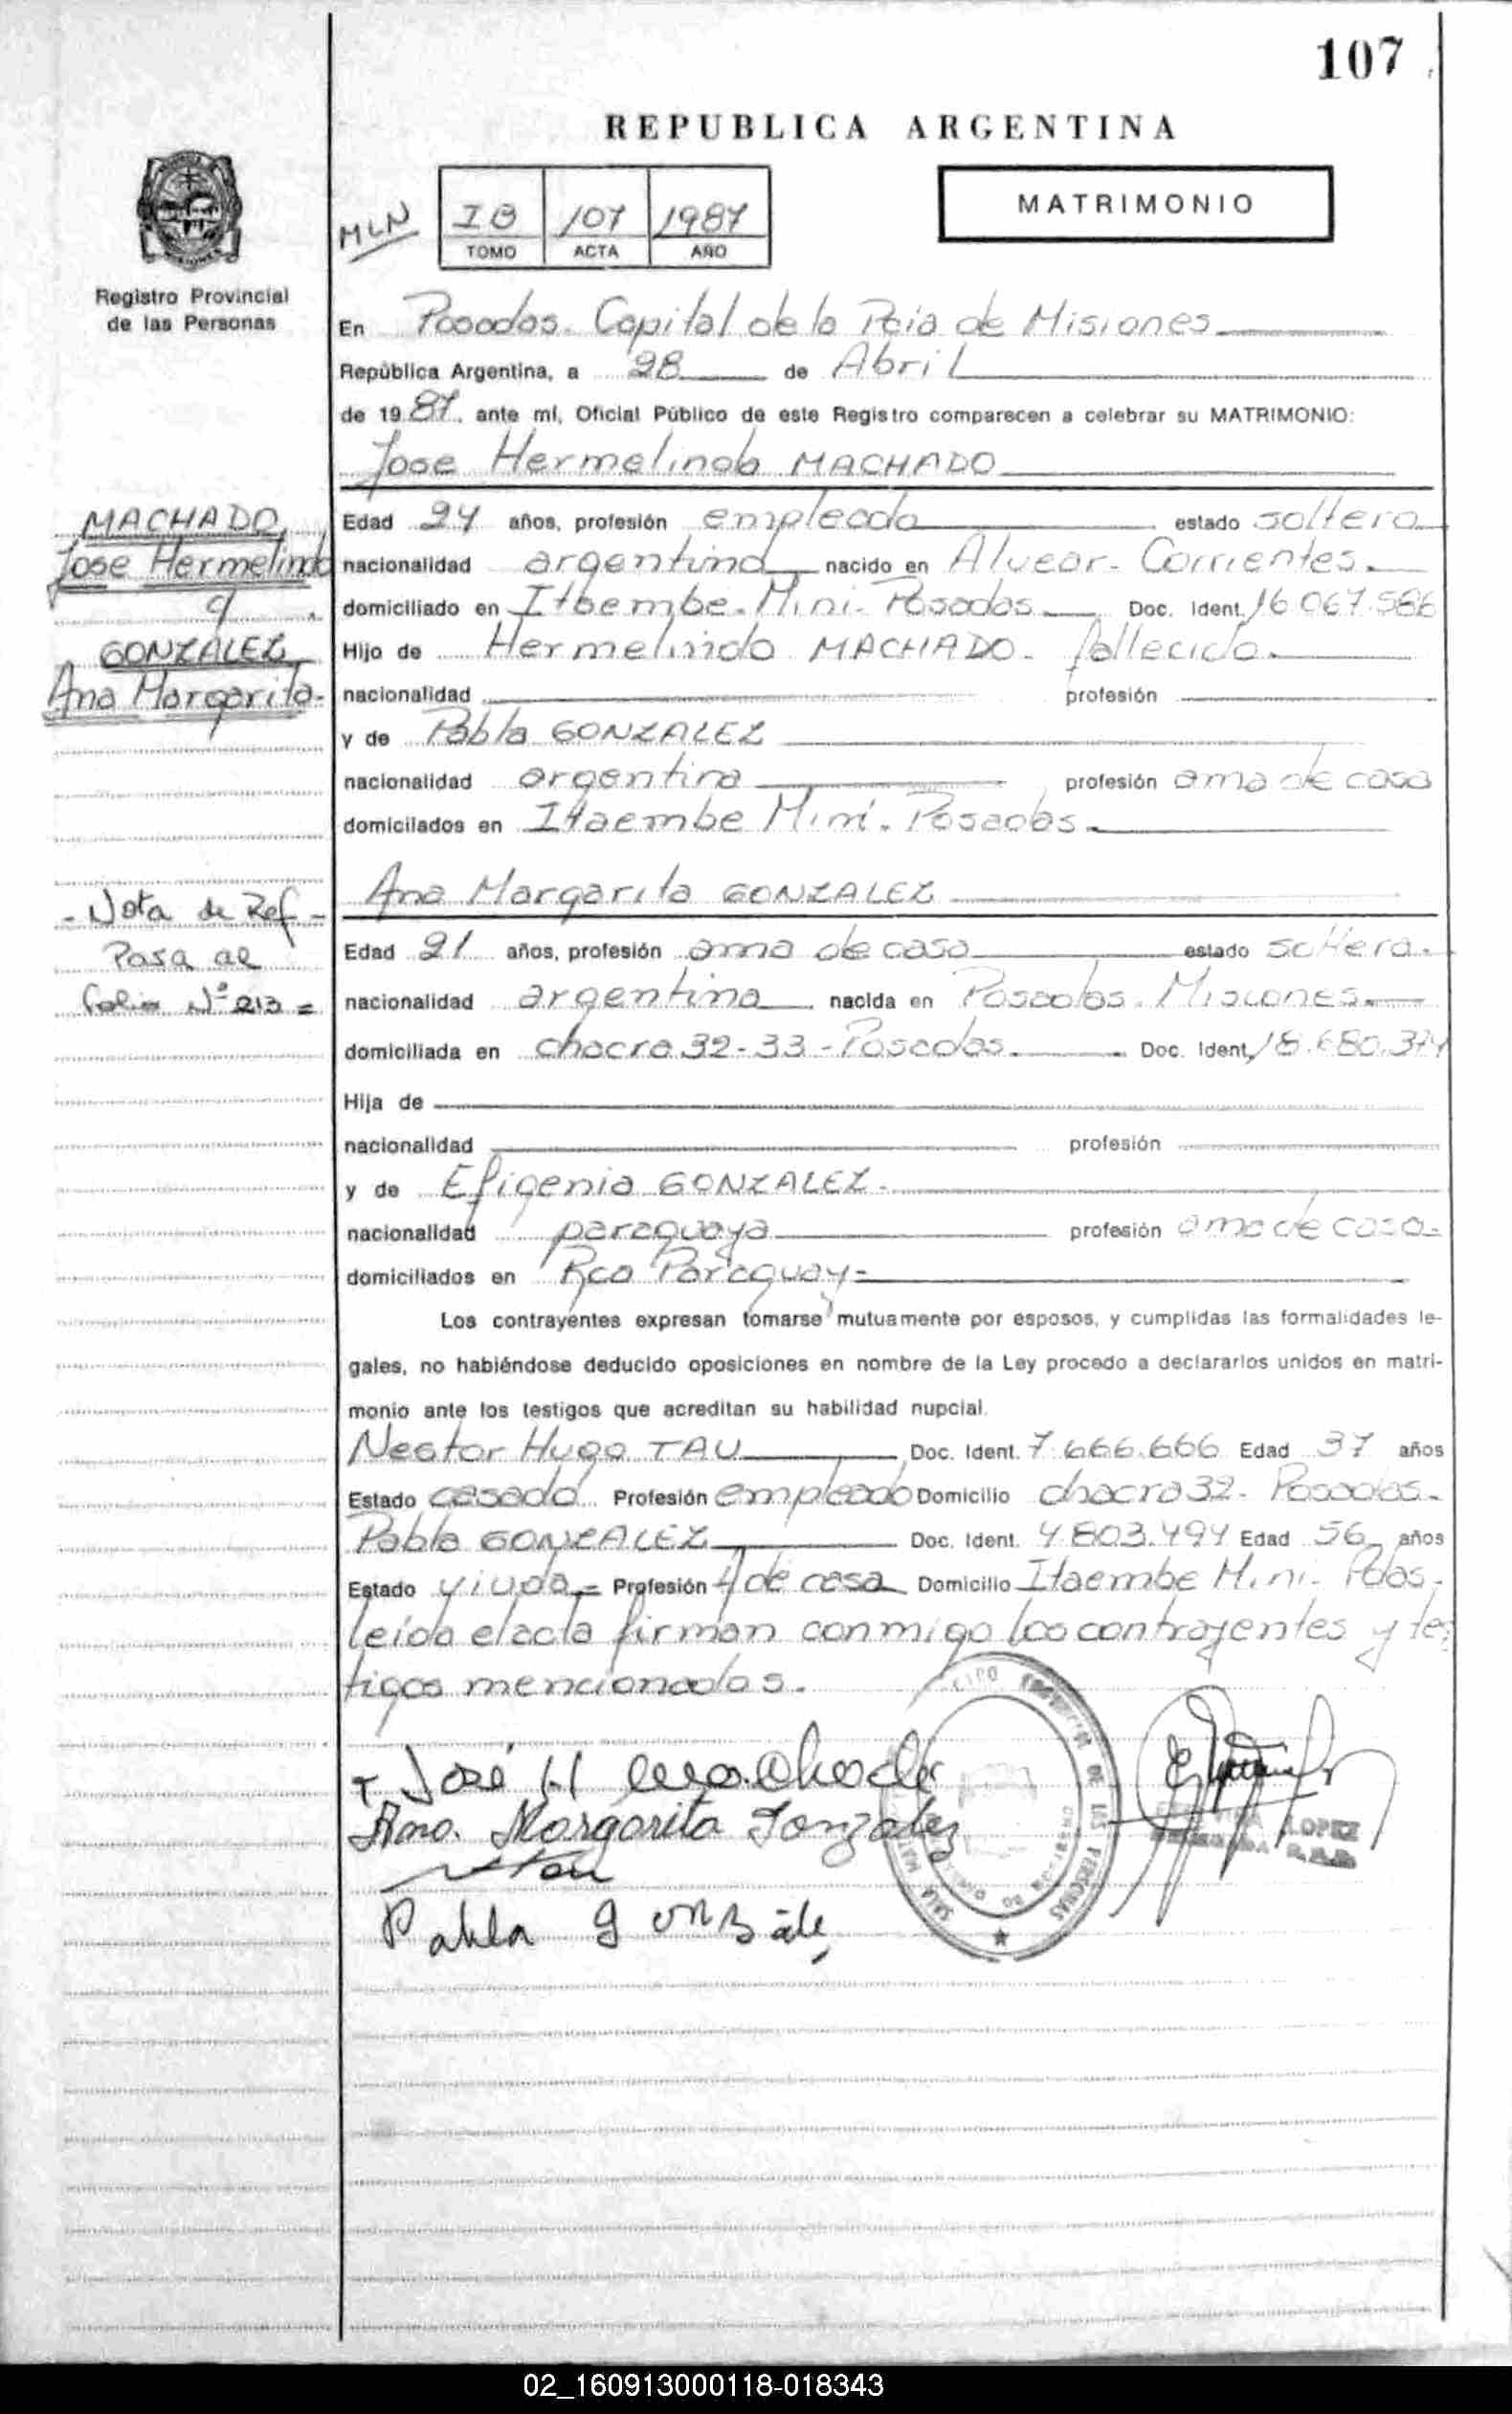 107
REPUBLICA ARGENTINA
MLN
107 1987
TOMO ACTA AÑO
MATRIMONIO
Registro Provincial
de las Personas
En Posadas. Capital de la Pcia de Misiones
República Argentina, a 28 de Abril
de 1987. ante mí, Oficial Público de este Registro comparecen a celebrar su MATRIMONIO:
Jose Hermelindo MACHADO
MACHADO
Jose Hermelindo
GONZALEZ
Ana Margarita.
Edad 24 años, profesión empleado estado soltero
nacionalidad argentino nacido en Alvear- Corrientes.
domiciliado en Itaembe-Mini- Posadas. Doc. Ident. 16.067.566
Hijo de Hermelindo MACHADO- fallecido.
nacionalidad profesión
y de Pabla GONZALEZ
nacionalidad argentina profesión ama de casa
domicilados en Itaembe Mini. Posadas.
Ana Margarita GONZALEZ
- Nota de Ref -
Pasa al
folio Nº 213 =
Edad 21 años, profesión ama de casa estado soltera.
nacionalidad argentina nacida en Posadas. Misiones.
domiciliada en chacra 32-33-Posadas. Doc. Ident. 18.680.374
Hija de
nacionalidad profesión
y de Efigenia GONZALEZ.
nacionalidad paraguaya profesión ama de casa-
domiciliados en Rca Paraguay-
Los contrayentes expresan tomarse mutuamente por esposos, y cumplidas las formalidades le-
gales, no habiéndose deducido oposiciones en nombre de la Ley procedo a declararlos unidos en matri-
monio ante los testigos que acreditan su habilidad nupcial.
Nestor Hugo TAU Doc. Ident. 7.666.666 Edad 37 años
Estado casado Profesión empleado Domicilio chacra 32- Posadas.
Pabla GONZALEZ Doc. Ident. 4.803.494 Edad 56 años
Estado viuda= Profesión A de casa Domicilio Itaembe Mini- Pdas.
leida el acta firman conmigo los contrayentes y tes
tigos mencionados.
José H Machado
Ana. Margarita Gonzalez
Tau
Pabla Gonzále
LOPEZ
02_160913000118-018343